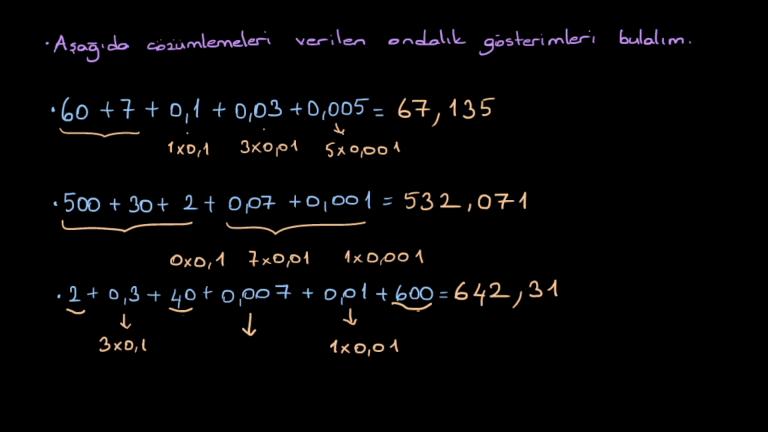 · Aşağıda çözümlemeleri verilen ondalık gösterimleri bulalım.
· 60 + 7 + 0,1 + 0,03 + 0,005 = 67,135
1x0,1 3x0,01 5x0,001
· 500 + 30 + 2 + 0,07 + 0,001 = 532,071
0x0,1 7x0,01 1x0,001
· 2 + 0,3 + 40 + 0,007 + 0,01 + 600 = 642,31
3x0,1 1x0,01